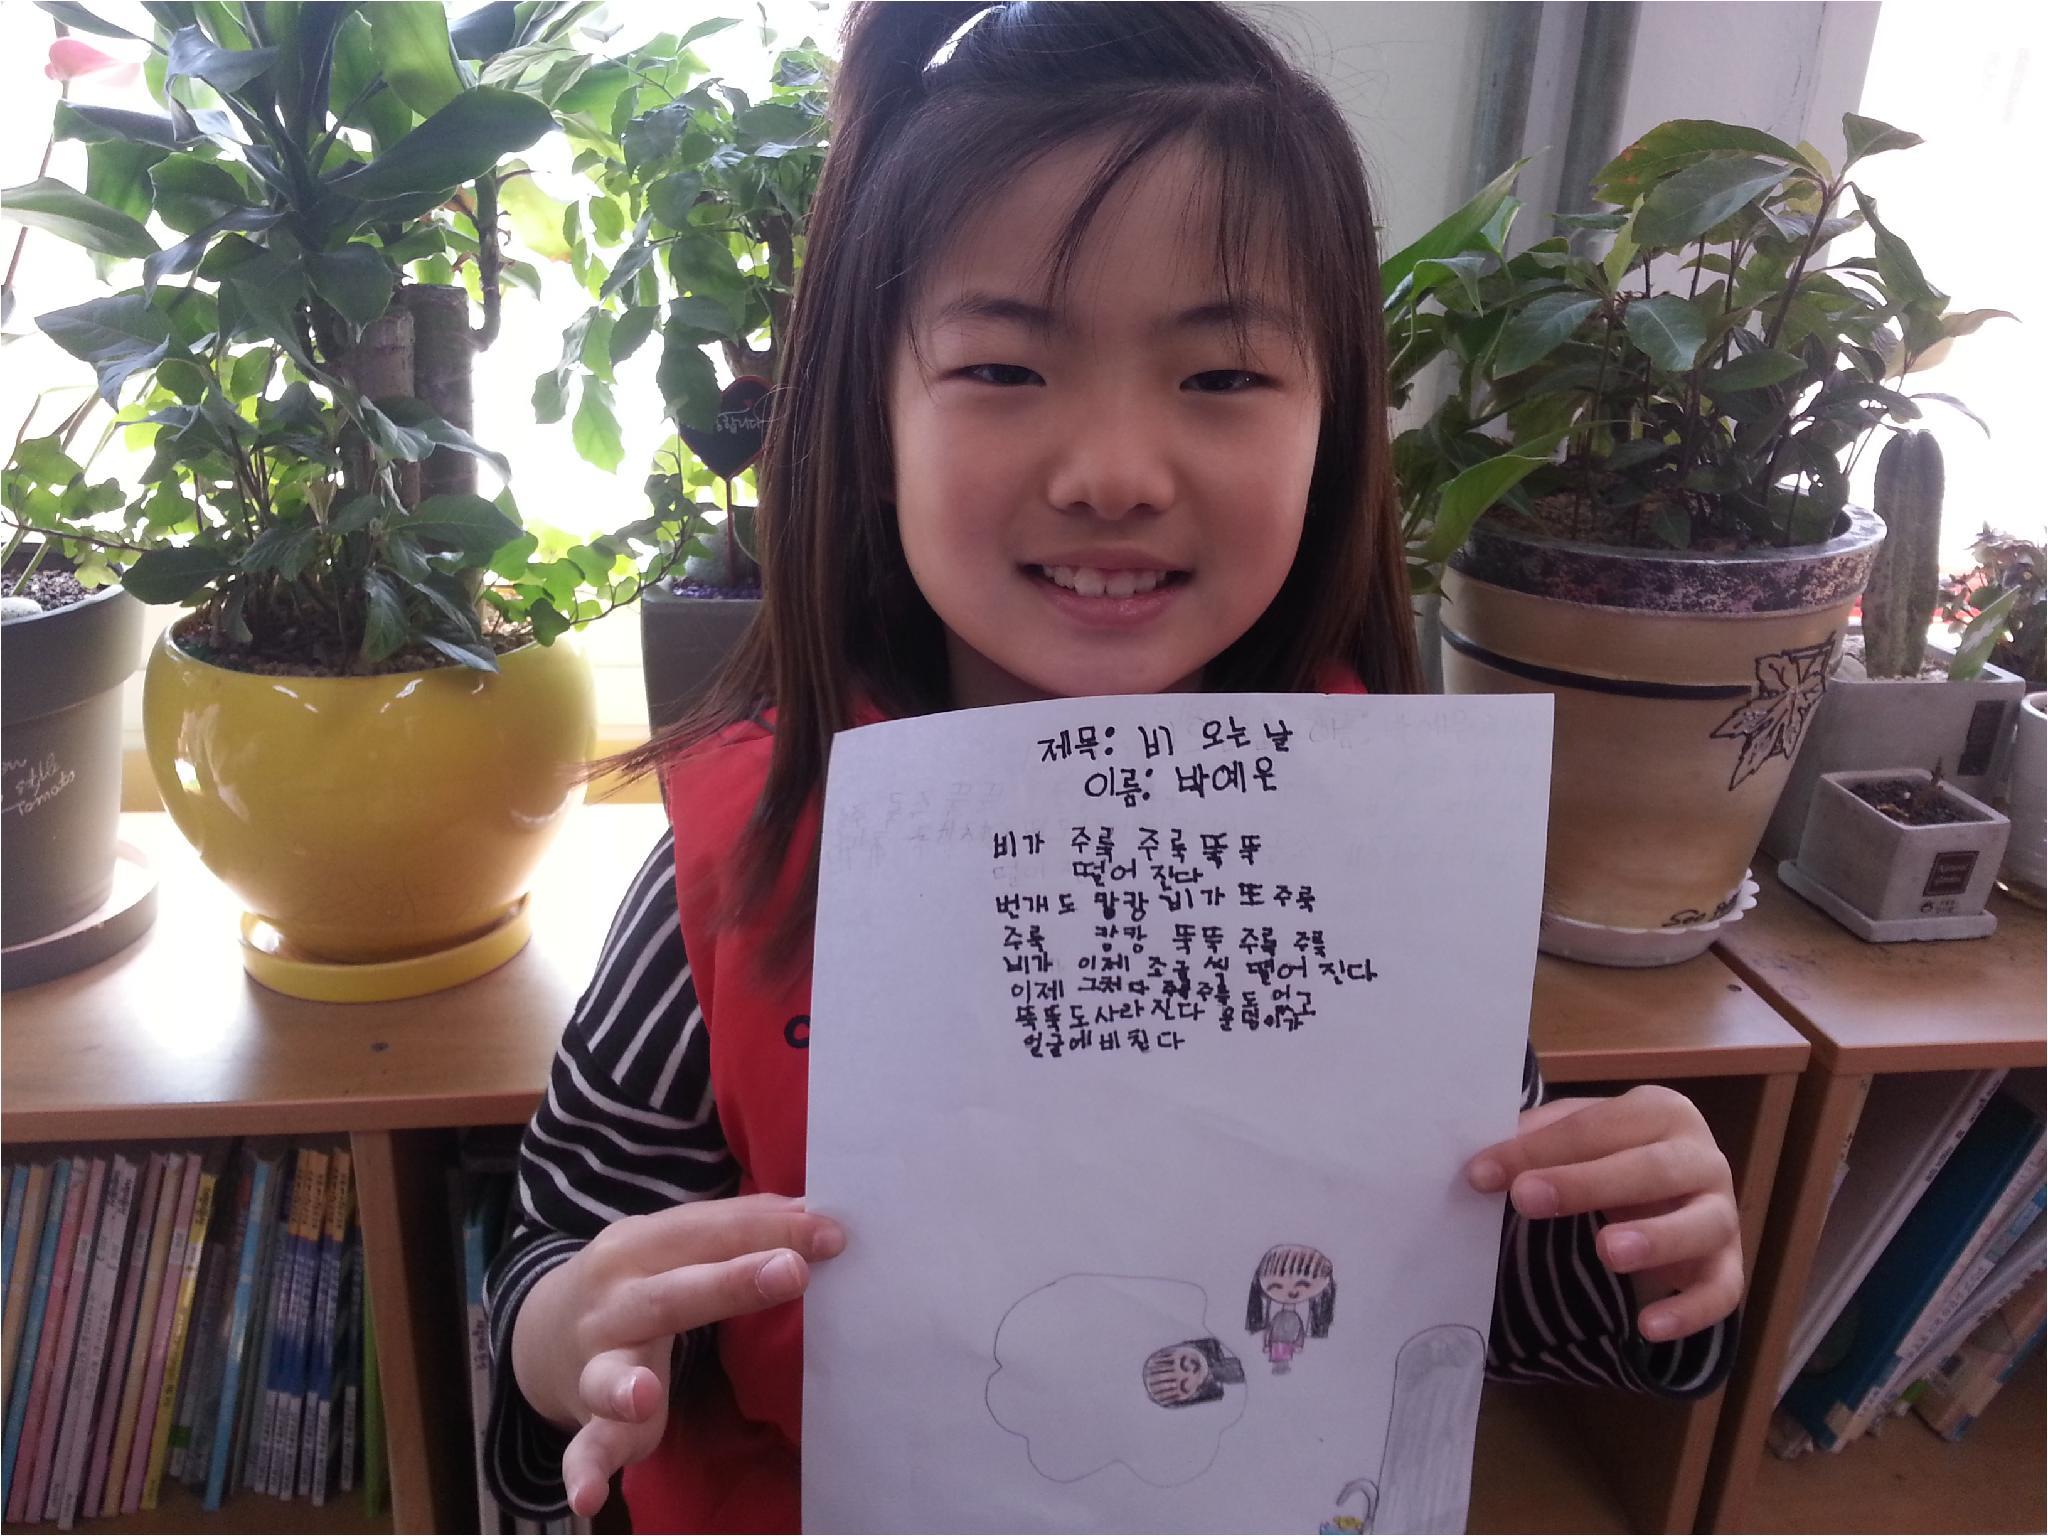 제목: 비 오는 날
이름: 박예은
비가 주룩 주룩 뚝 뚝
떨어 진다
번개도 캉캉 비가 또 주룩
주룩 캉캉 뚝뚝 주룩 주룩
비가 이제 조금 씩 떨어 진다
이제 그쳤다 주룩주룩도
뚝뚝도사라 진다 웅덩이가
얼굴에비친다
style
Tomato